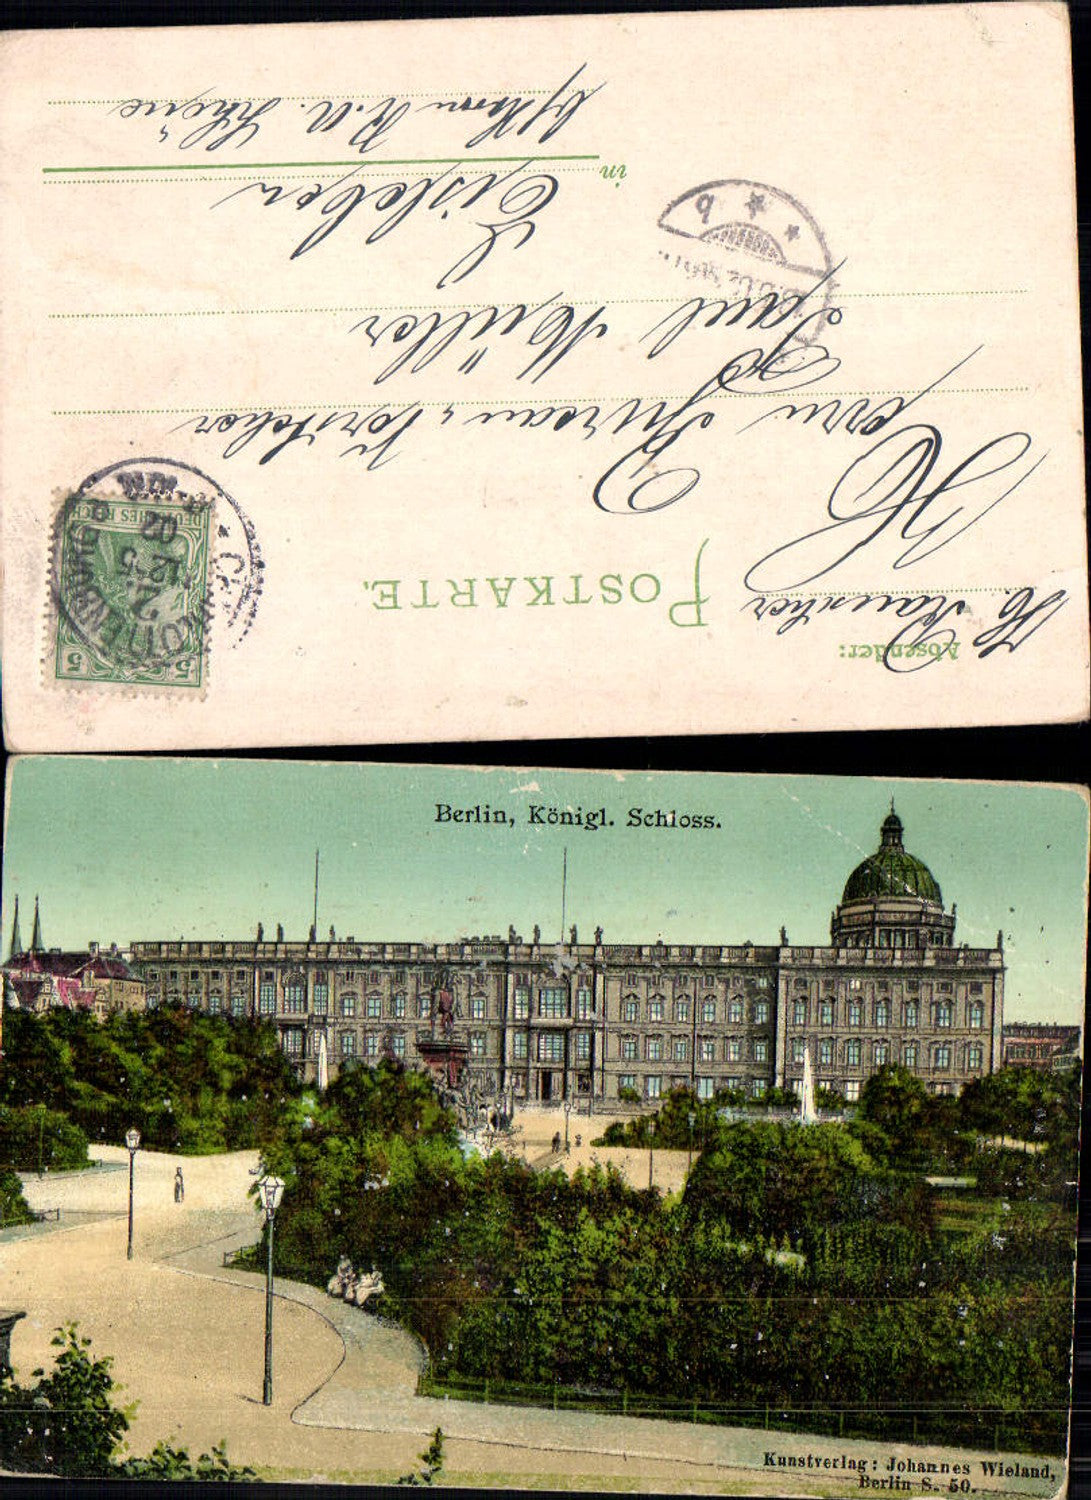 Absender:
H. Rauscher
POSTKARTE.
Herrn Bureau-Vorsteher
Paul Müller
in Eisleben
b/ Herrn R.A. Schöne
CHARLOTTENBURG 2
2.12.
5-
02
DEUTSCHES REICH
5 5
Berlin, Königl. Schloss.
Kunstverlag: Johannes Wieland,
Berlin S. 50.